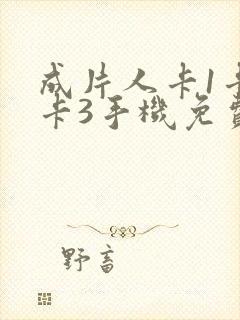 成片人卡1卡
卡3手機免費
野畜